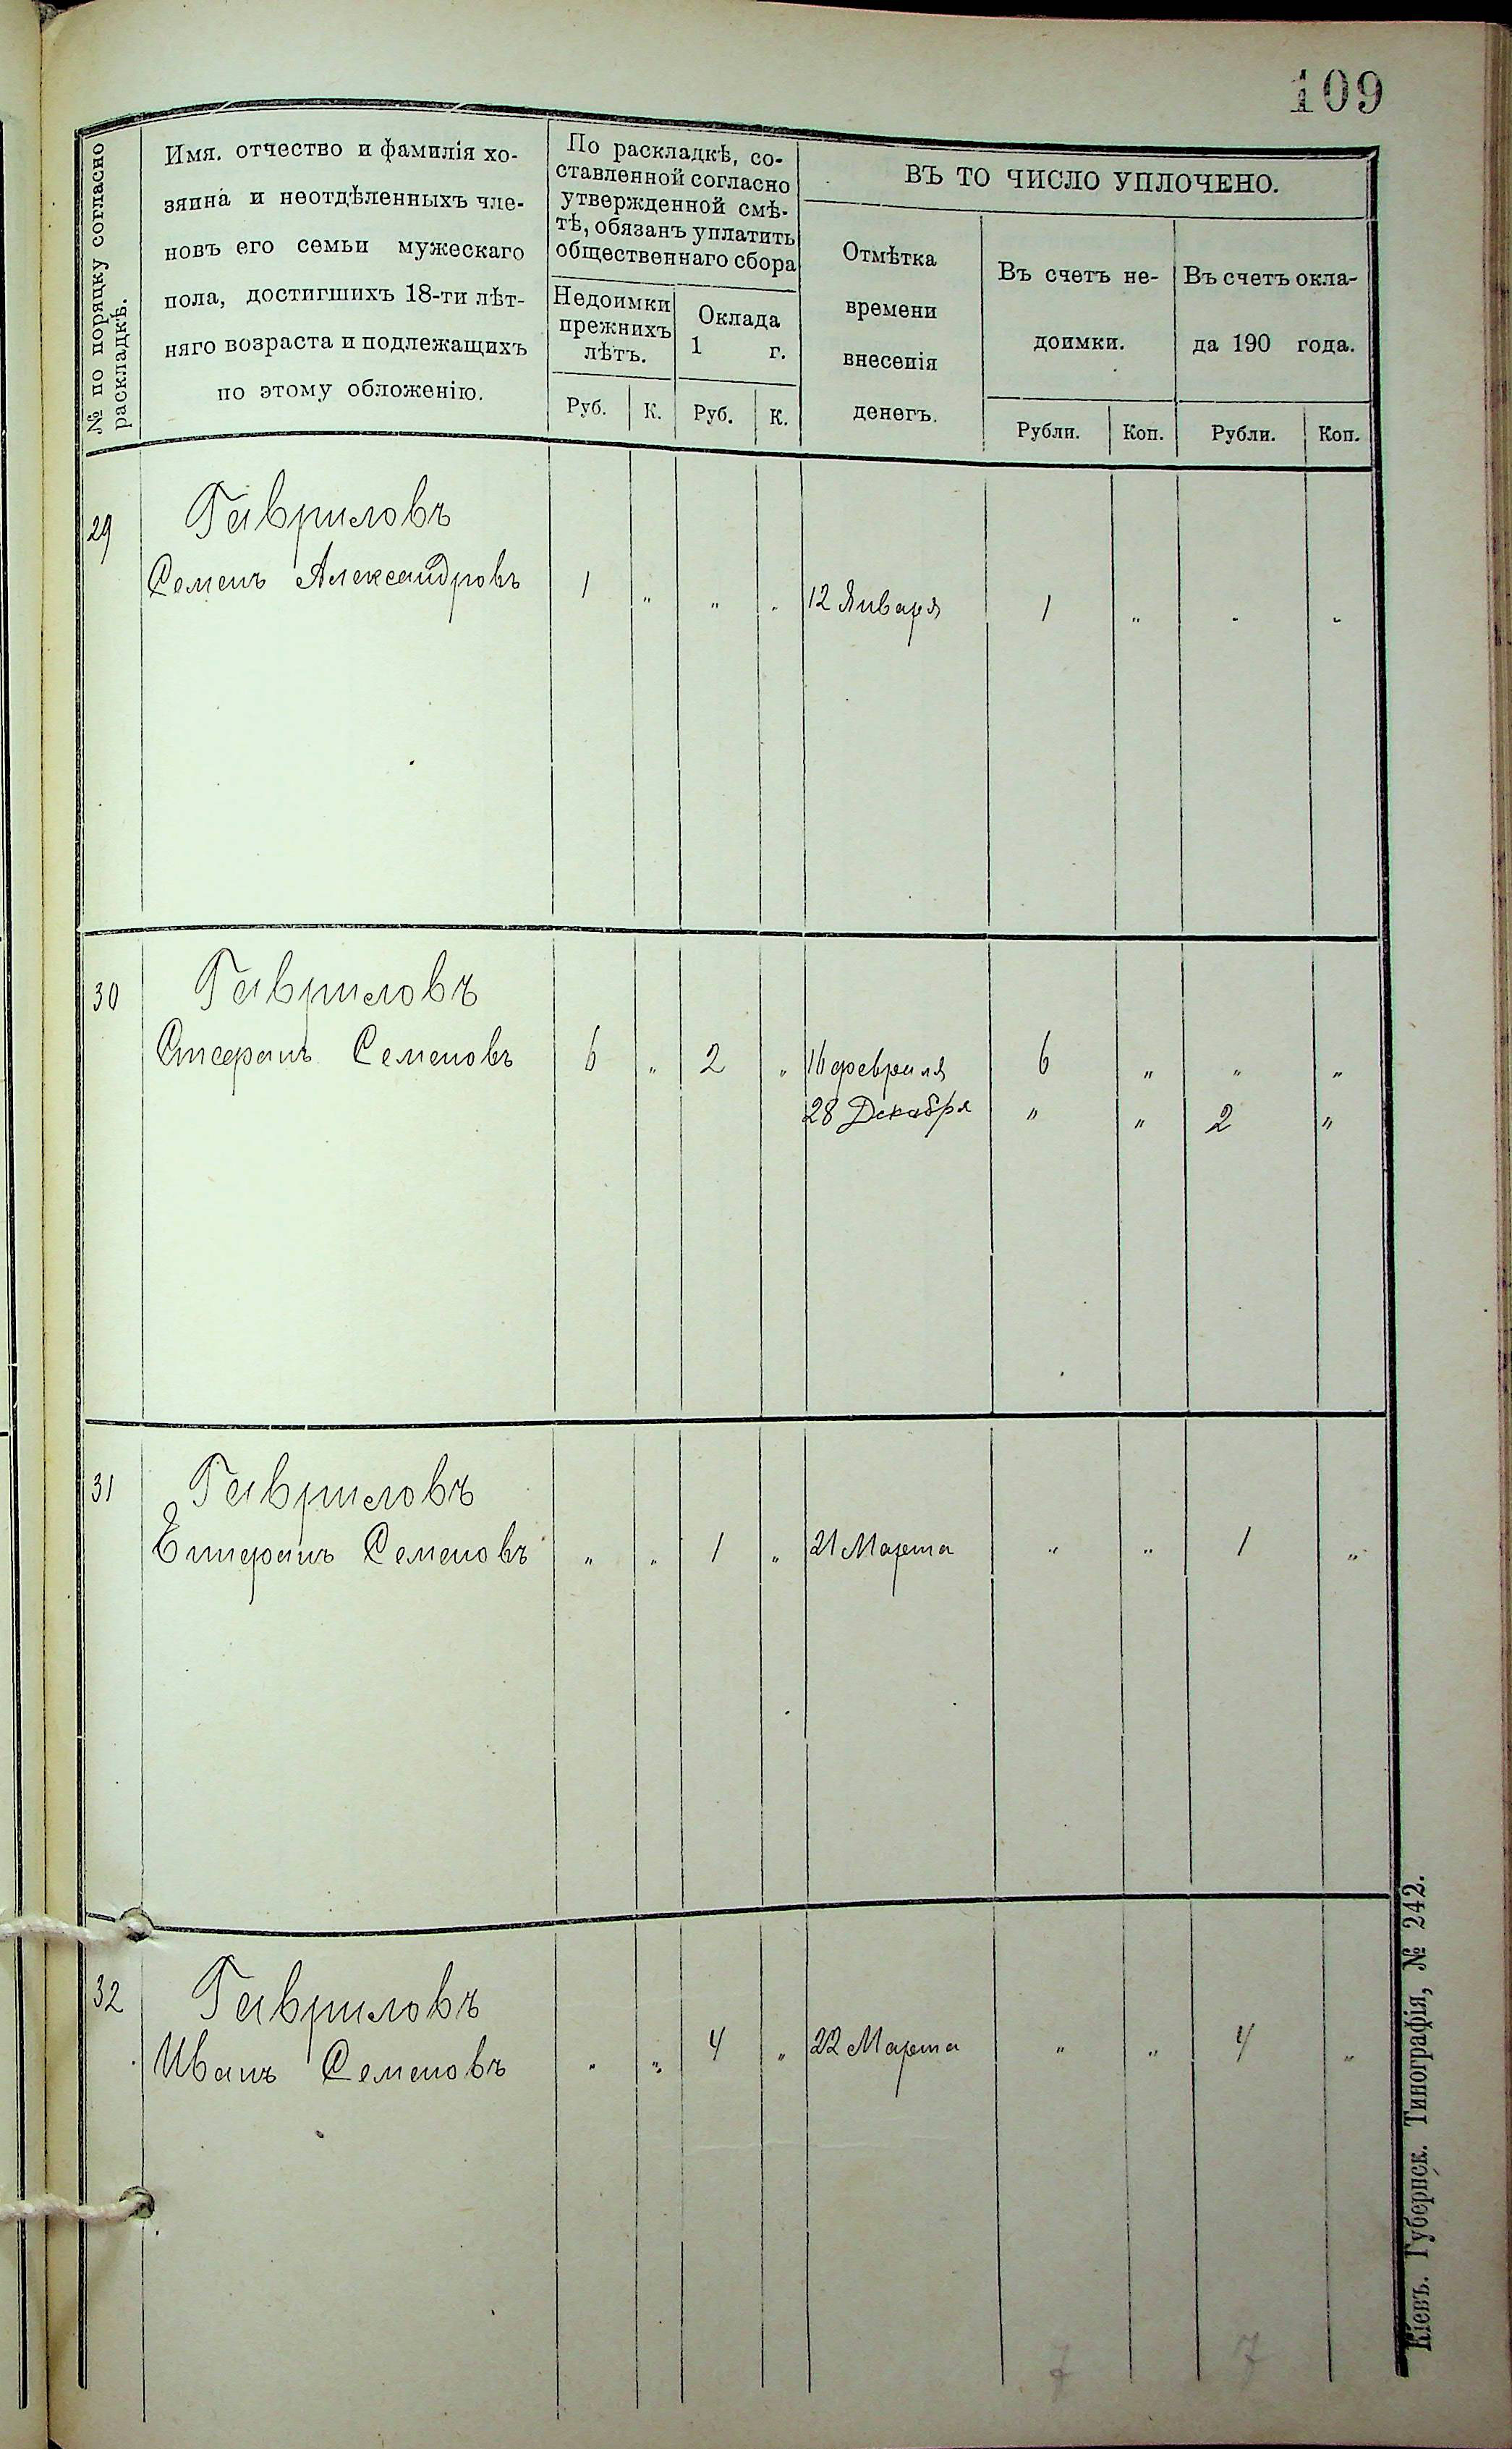 109
№ по порядку согласно
раскладкѣ.
Имя. отчество и фамилія хо-
зяина и неотдѣленныхъ чле-
новъ его семьи мужескаго
пола, достигшихъ 18-ти лѣт-
няго возраста и подлежащихъ
по этому обложенію.
По раскладкѣ, со-
ставленной согласно
утвержденной смѣ-
тѣ, обязанъ уплатить
общественнаго сбора
Недоимки
прежнихъ
лѣтъ.
Оклада
1 г.
Руб. К. Руб. К.
ВЪ ТО ЧИСЛО УПЛОЧЕНО.
Отмѣтка
времени
внесенія
денегъ.
Въ счетъ не-
доимки.
Въ счетъ окла-
да 190 года.
Рубли. Коп. Рубли. Коп.
29 Гавриловъ
Семенъ Александровъ 1 „ „ „ 12 Января 1 „ „ „
30 Гавриловъ
Стефанъ Семеновъ 6 „ 2 „ 16 февраля 6 „ „ „
28 Декабря „ „ 2 „
31 Гавриловъ
Епифанъ Семеновъ „ „ 1 „ 21 Марта „ „ 1 „
32 Гавриловъ
Иванъ Семеновъ „ „ 4 „ 22 Марта „ „ 4 „
7 7
Кіевъ. Губернск. Типографія, № 242.